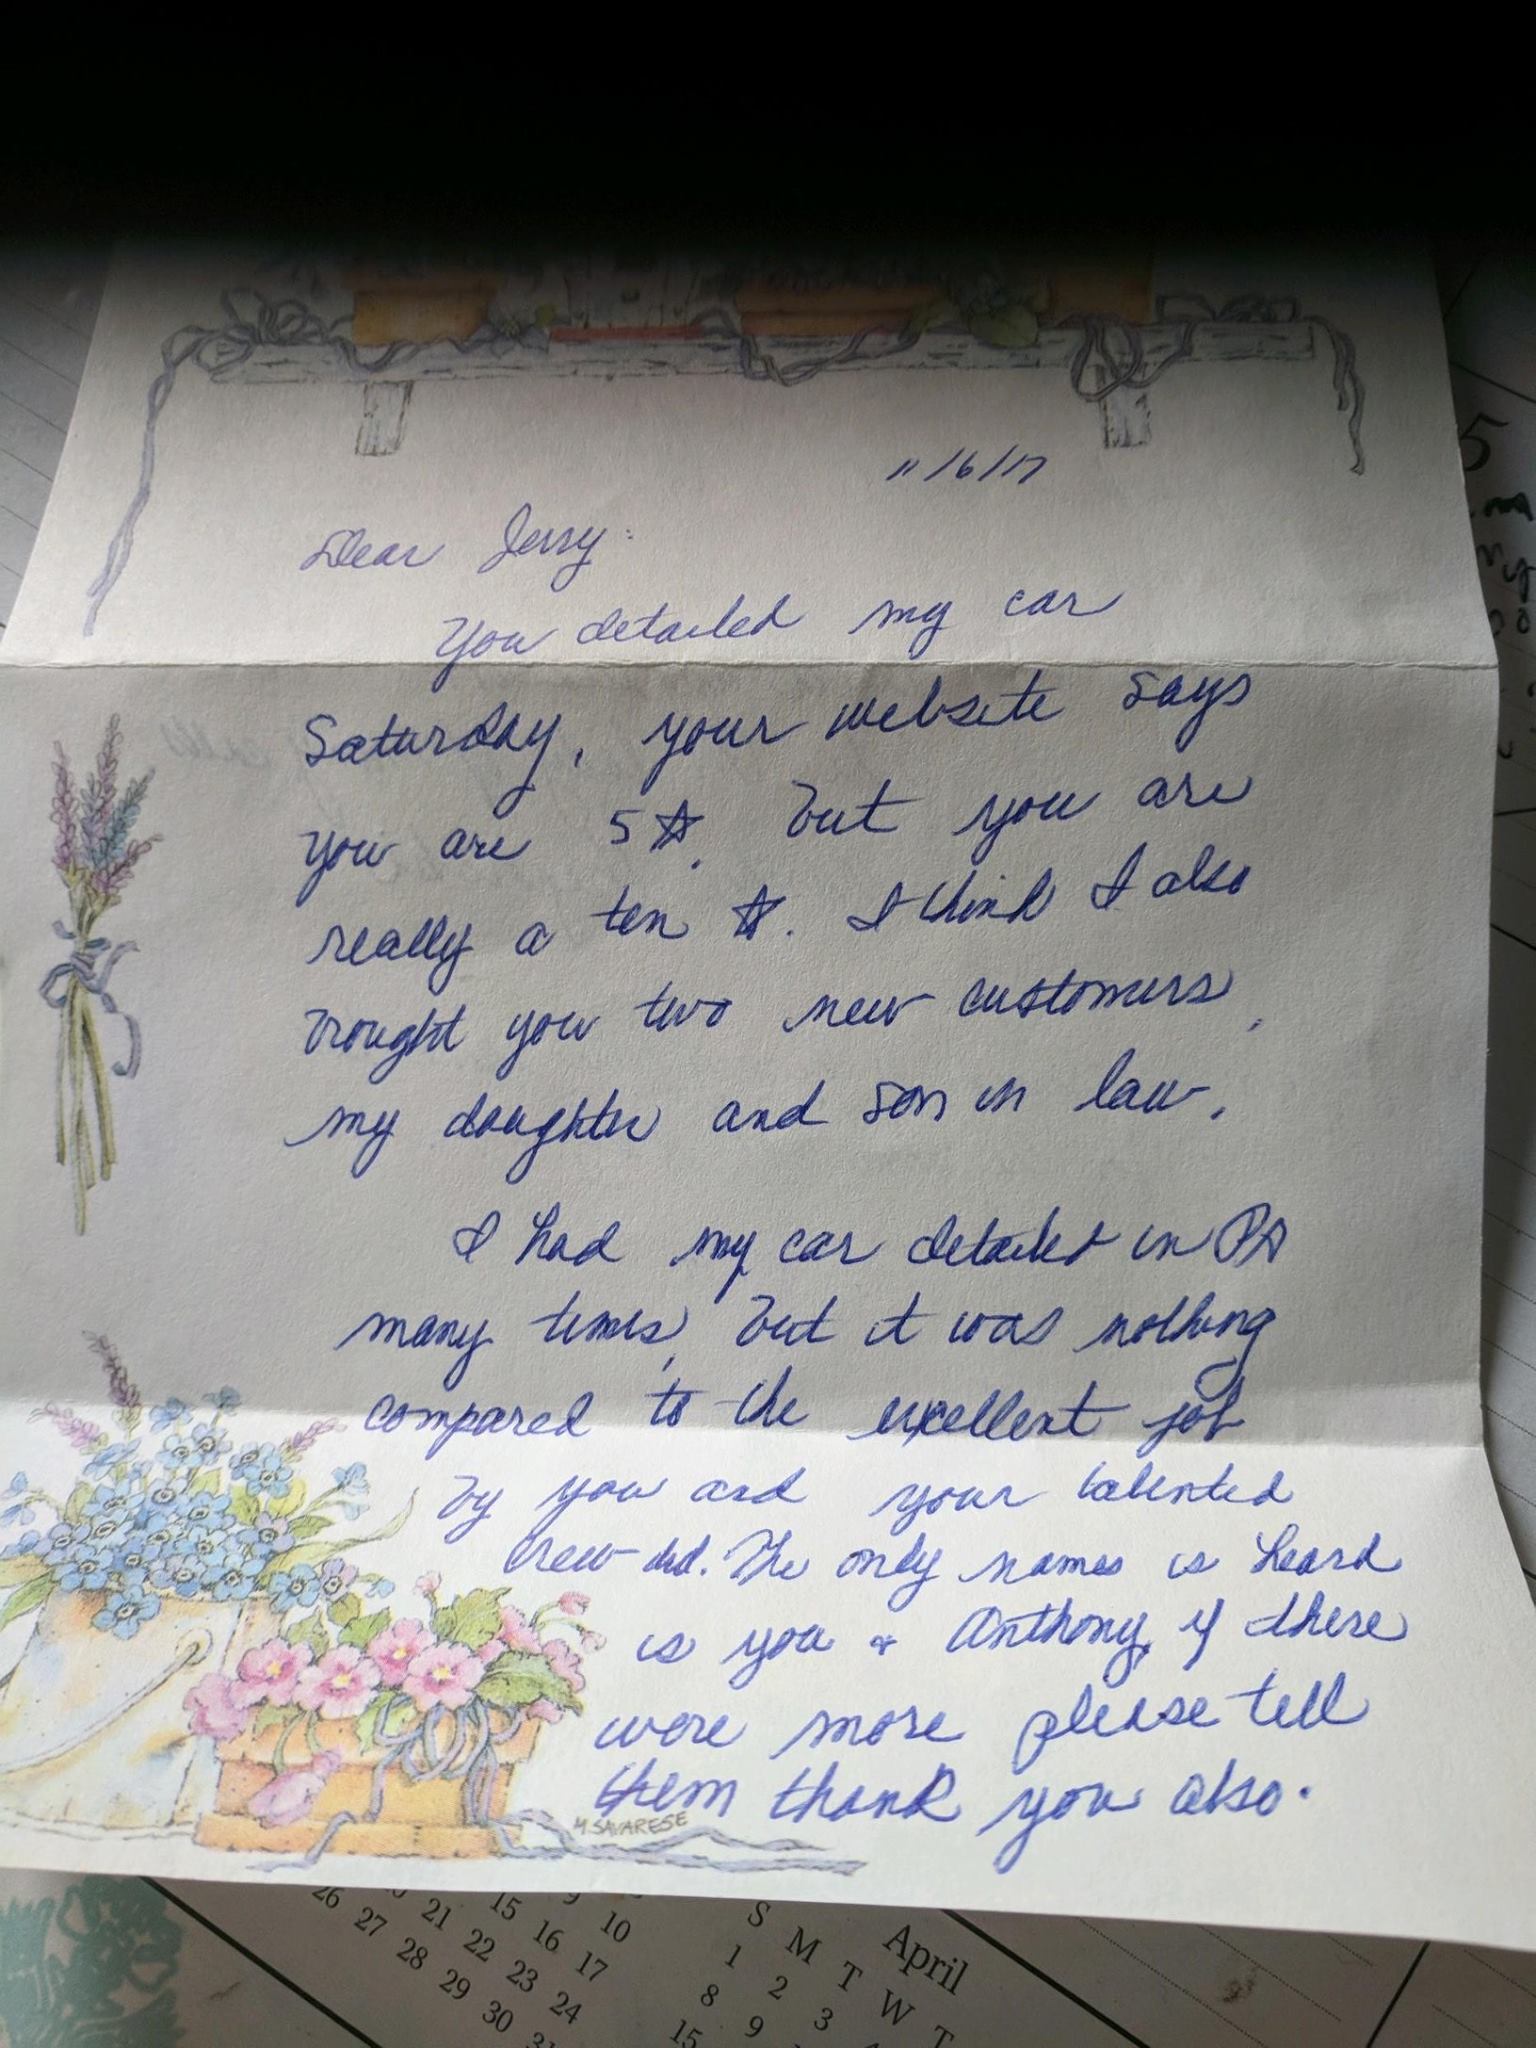 11/6/17
Dear Jerry:
You detailed my car
Saturday, your website says
you are 5☆, but you are
really a ten ☆. I think I also
brought you two new customers,
my daughter and son in law.
I had my car detailed in PA
many times, but it was nothing
compared to the excellent job
by you and your talented
crew did. The only names is heard
is you + Anthony, if there
were more please tell
them thank you also.
M. SAVARESE
5
April
S M T W T
1 2 3
8 9
15
9 10
15 16 17
21 22 23 24
26 27 28 29 30 31